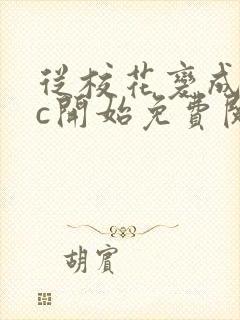 從校花褻成
c開始免費閱
胡賓